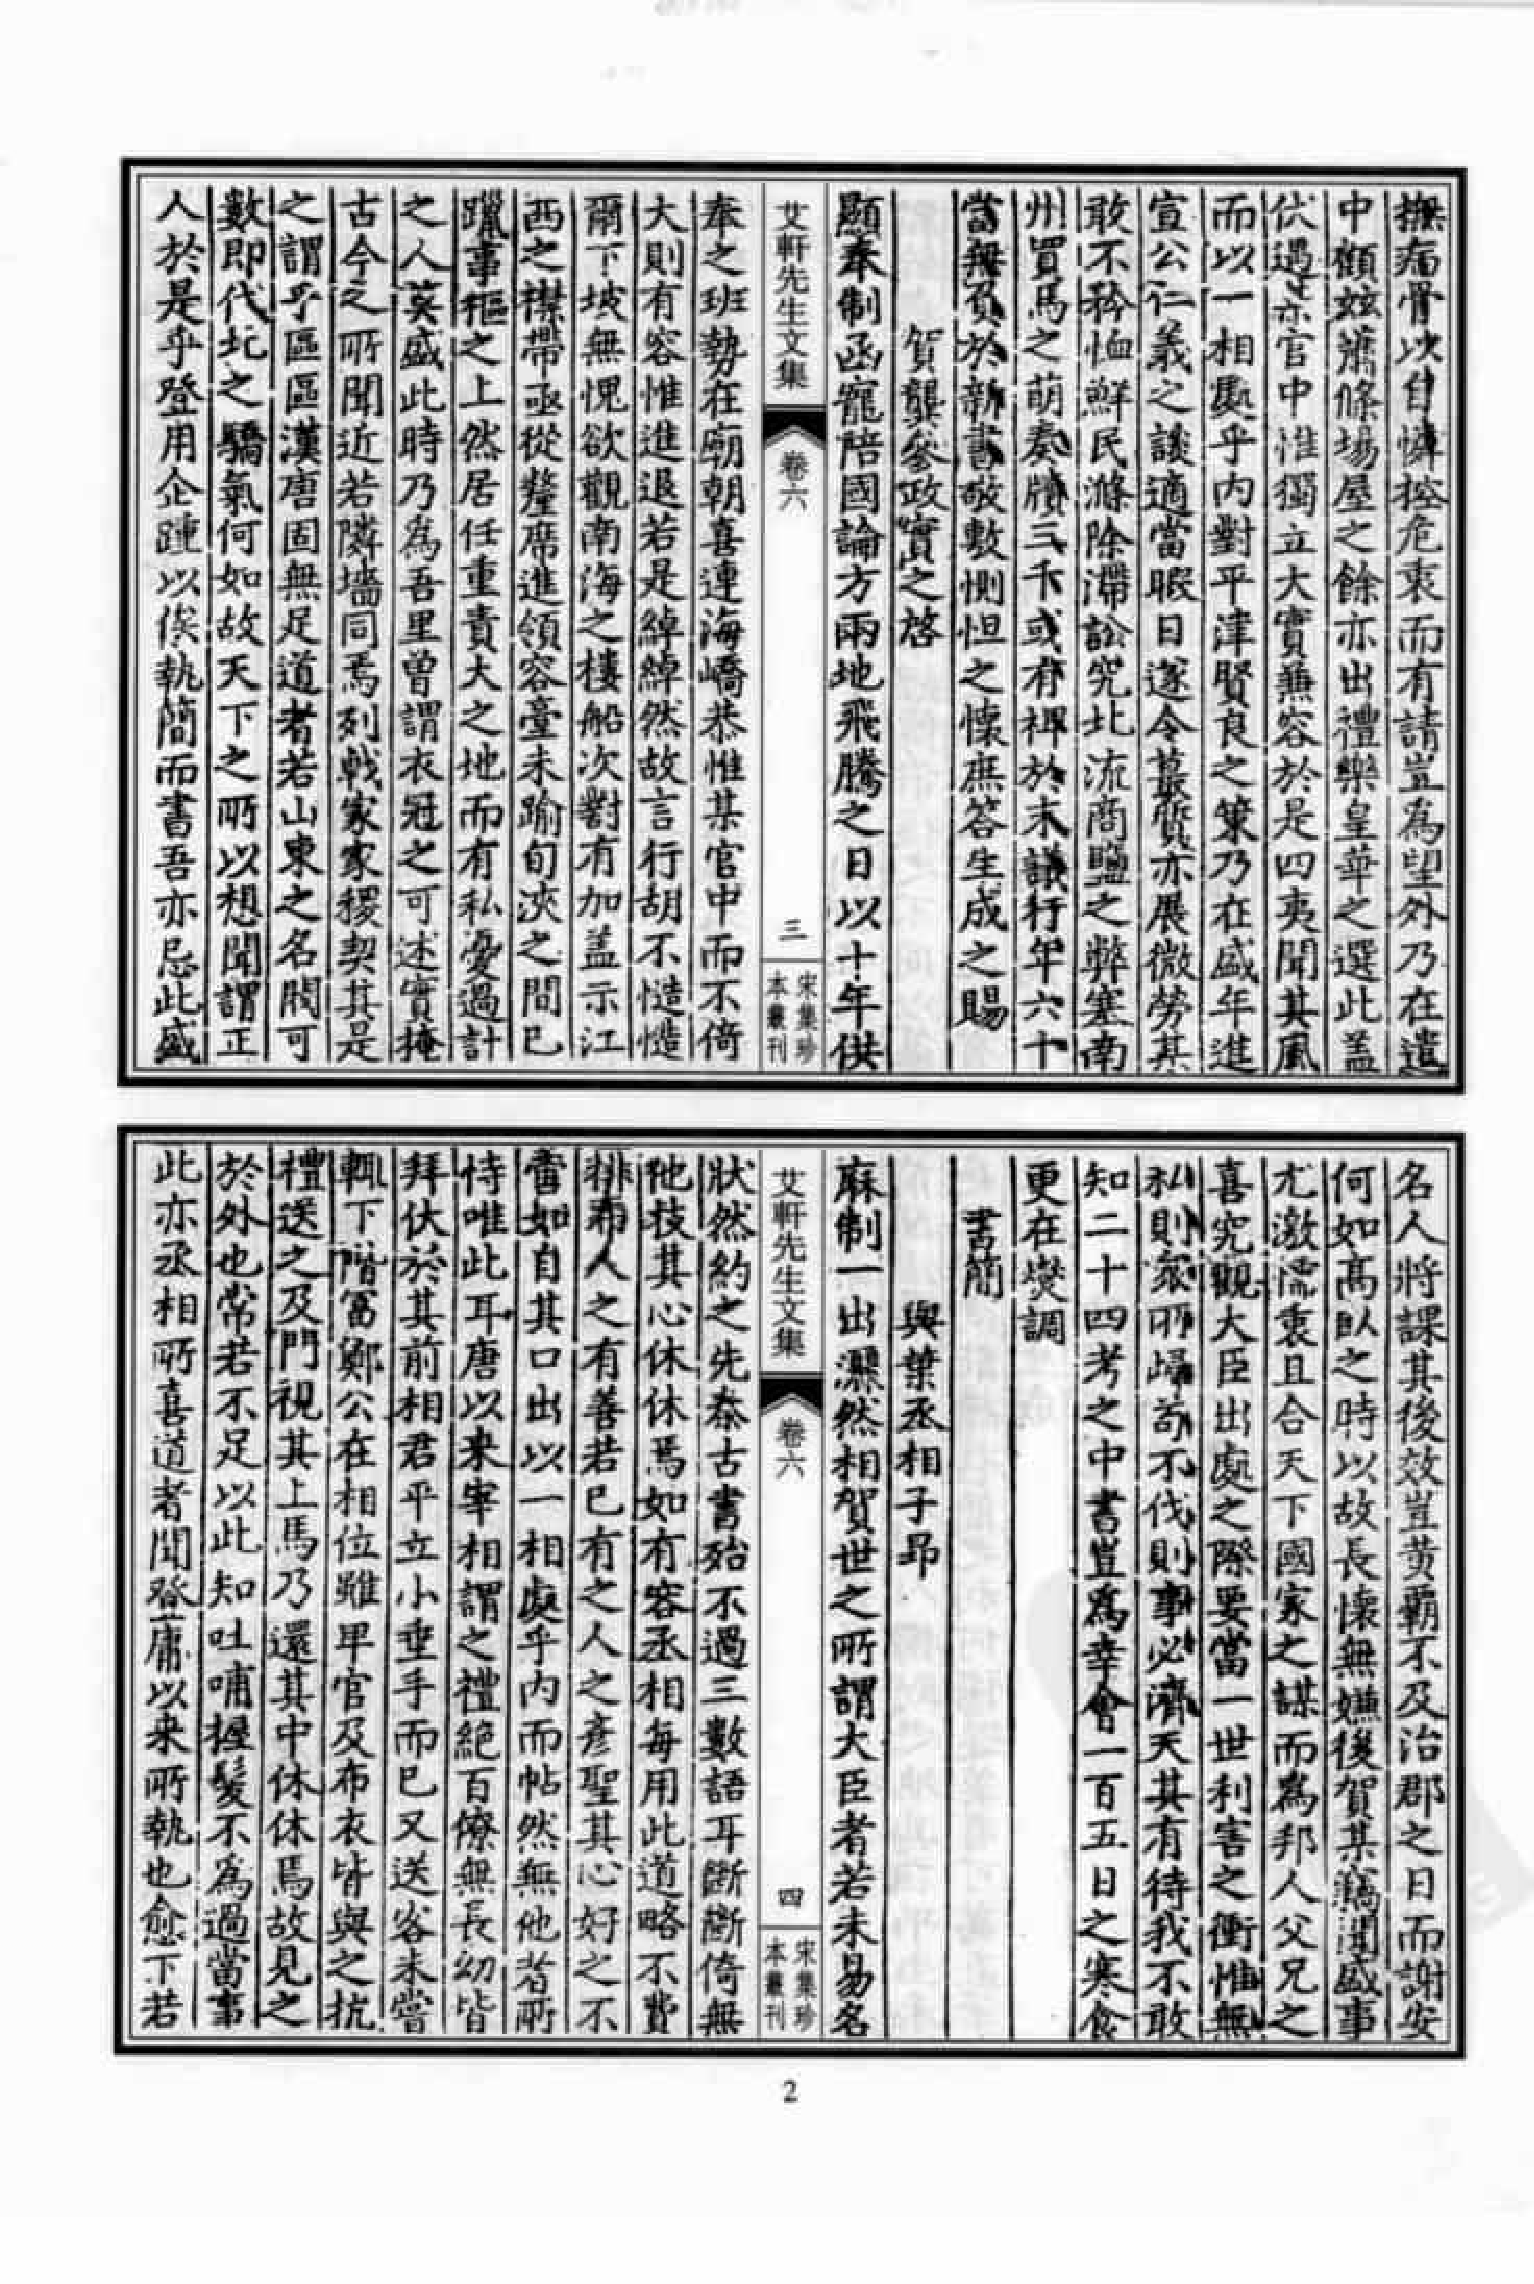 撫病骨以自憐控危衷而有請豈為望外乃在遣
中顧茲蕭條場屋之餘亦出禮樂皇華之選此蓋
伏遇某官中惟獨立大實兼容於是四夷聞其風
而以一相處乎内對平津賢良之策乃在盛年進
宣公仁義之談適當暇日遂令蕞質亦展微勞其
敢不矜恤鮮民滌除滯訟究北流商鹽之弊塞南
州買馬之萌奏牘三千或有裨於末議行年六十
當無負於新書敬敷惻怛之懷庶答生成之賜
賀龔參政實之啓
顯奉制函寵陪國論方兩地飛騰之日以十年供
艾軒先生文集
卷六
三
宋集珍
本叢刊
奉之班勢在廟朝喜連海嶠恭惟某官中而不倚
大則有容惟進退若是綽綽然故言行胡不慥慥
爾下坡無愧欲觀南海之樓船次對有加盖示江
西之襟帶亟從釐席進領容臺未踰旬浹之間已
躐事樞之上然居任重責大之地而有私憂過計
之人莫盛此時乃為吾里曾謂衣冠之可述實掩
古今之所聞近若隣墻同焉列戟家家稷契其是
之謂乎區區漢唐固無足道者若山東之名閥可
數即代北之驕氣何如故天下之所以想聞謂正
人於是乎登用企踵以俟執簡而書吾亦忌此盛
名人將課其後效豈黄霸不及治郡之日而謝安
何如高臥之時以故長懷無嫌後賀某竊聞盛事
尤激懦衷且合天下國家之謀而為邦人父兄之
喜究觀大臣出處之際要當一世利害之衝惟無
私則衆所歸苟不伐則事必濟天其有待我不敢
知二十四考之中書豈為幸會一百五日之寒食
更在燮調
書簡
與葉丞相子昂
麻制一出灑然相賀世之所謂大臣者若未易名
艾軒先生文集
卷六
四
宋集珍
本叢刊
狀然約之先秦古書殆不過三數語耳斷斷倚無
他技其心休休焉如有容丞相每用此道略不費
排布人之有善若已有之人之彥聖其心好之不
啻如自其口出以一相處乎内而帖然無他者所
恃唯此耳唐以来宰相謂之禮絶百僚無長幼皆
拜伏於其前相君平立小垂手而已又送客未嘗
輒下階富鄭公在相位雖甲官及布衣皆與之抗
禮送之及門視其上馬乃還其中休休焉故見之
於外也常若不足以此知吐哺握髮不為過當事
此亦丞相所喜道者聞登庸以来所執也愈下若
2